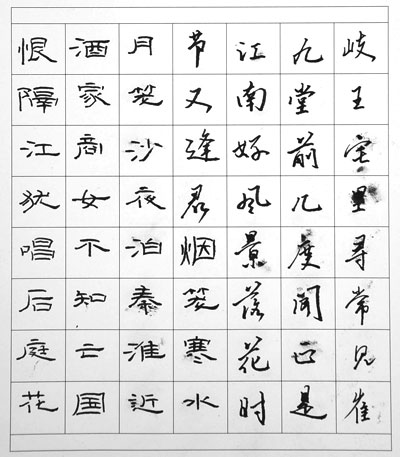 岐王宅里寻常见崔
九堂前几度闻正是
江南好风景落花时
节又逢君烟笼寒水
月笼沙夜泊秦淮近
酒家商女不知亡国
恨隔江犹唱后庭花